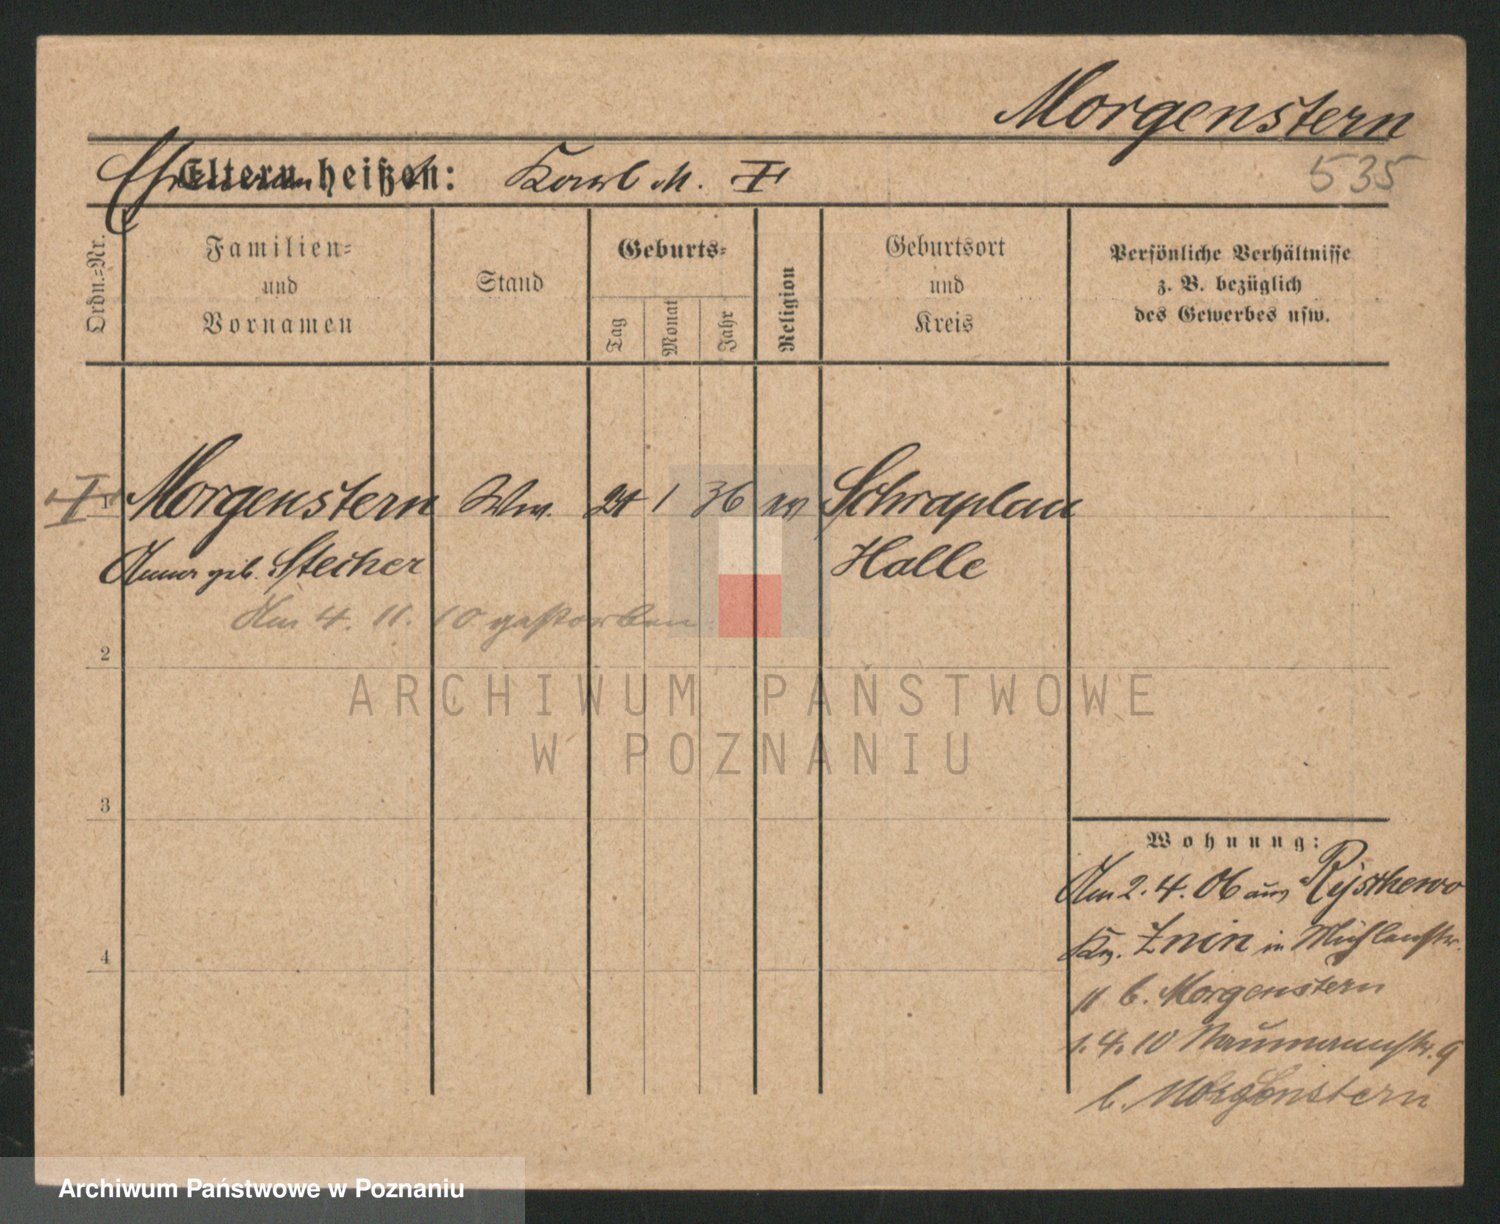 Morgenstern
535
Eltern heißen: Karl M.
Ordn.=Nr.
Familien=
und
Vornamen
Stand
Geburts=
Tag
Monat
Jahr
Religion
Geburtsort
und
Kreis
Persönliche Verhältnisse
z. B. bezüglich
des Gewerbes usw.
1 Morgenstern Ww. 24 1 36 ev Schraplau
Anna geb. Stecher Halle
Am 4. 11. 10 gestorben
2
ARCHIWUM PAŃSTWOWE
W POZNANIU
3
4
Wohnung:
Am 2. 4. 06 aus
Kr. Znin in Mühlenstr.
11 b. Morgenstern
1. 4. 10 Naumannstr. 9
b. Morgenstern
Archiwum Państwowe w Poznaniu